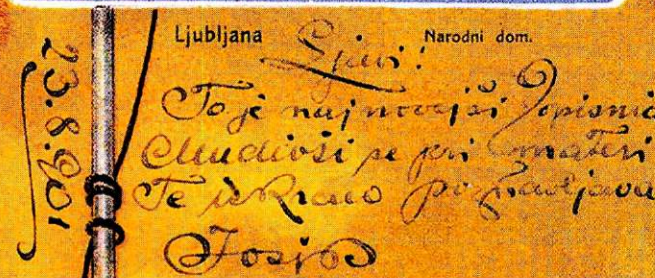 Ljubljana
Narodni dom.
23. 8. 901
To je najnovejši Dopisnic
se pri materi
Te iskreno pozdravljava
Josip